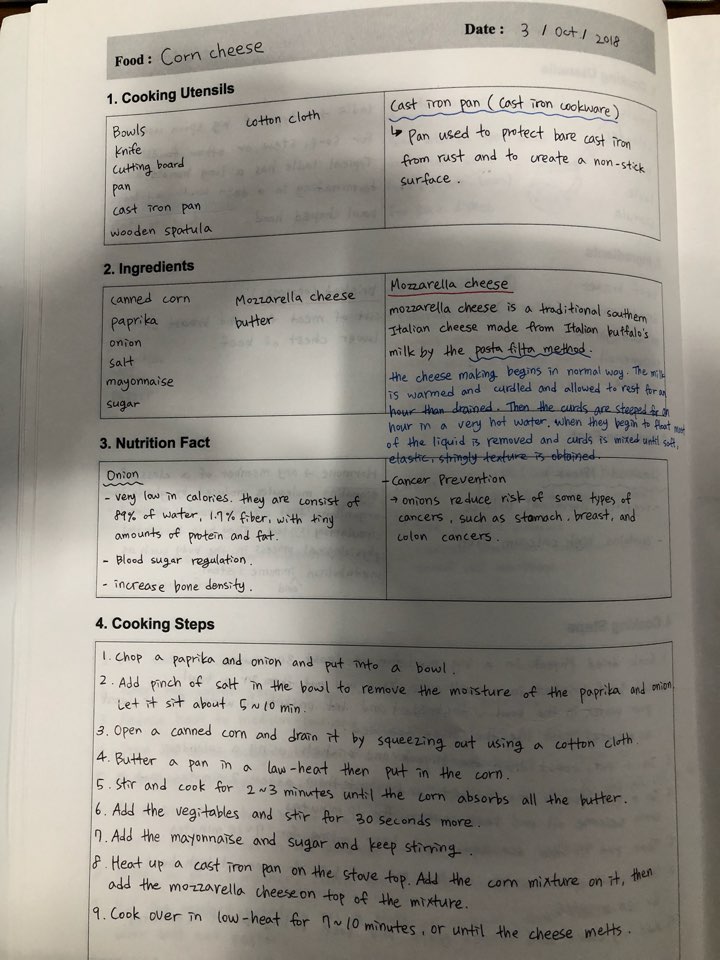 Food : Corn cheese
Date : 3 / Oct / 2018
1. Cooking Utensils
Bowls
knife
cutting board
pan
cast iron pan
wooden spatula
cotton cloth
Cast iron pan ( Cast iron cookware )
↳ Pan used to protect bare cast iron
from rust and to create a non-stick
surface .
2. Ingredients
canned corn
paprika
onion
salt
mayonnaise
sugar
Mozzarella cheese
butter
Mozzarella cheese
mozzarella cheese is a traditional southern
Italian cheese made from Italian buffalo's
milk by the pasta filta method.
the cheese making begins in normal way. The milk
is warmed and curdled and allowed to rest for an
hour than drained. Then the curds are steeped for an
hour in a very hot water. when they begin to float most
of the liquid is removed and curds is mixed until soft,
elastic, stringly texture is obtained.
3. Nutrition Fact
Onion
- very low in calories. they are consist of
89% of water, 1.7% fiber, with tiny
amounts of protein and fat.
- Blood sugar regulation.
- increase bone density.
- Cancer Prevention
→ onions reduce risk of some types of
cancers, such as stomach, breast, and
colon cancers.
4. Cooking Steps
1. Chop a paprika and onion and put into a bowl.
2. Add pinch of salt in the bowl to remove the moisture of the paprika and onion.
Let it sit about 5~10 min.
3. Open a canned corn and drain it by squeezing out using a cotton cloth.
4. Butter a pan in a law-heat then put in the corn.
5. Stir and cook for 2~3 minutes until the corn absorbs all the butter.
6. Add the vegitables and stir for 30 seconds more.
7. Add the mayonnaise and sugar and keep stirring.
8. Heat up a cast iron pan on the stove top. Add the corn mixture on it, then
add the mozzarella cheese on top of the mixture.
9. Cook over in low-heat for 7~10 minutes, or until the cheese melts.